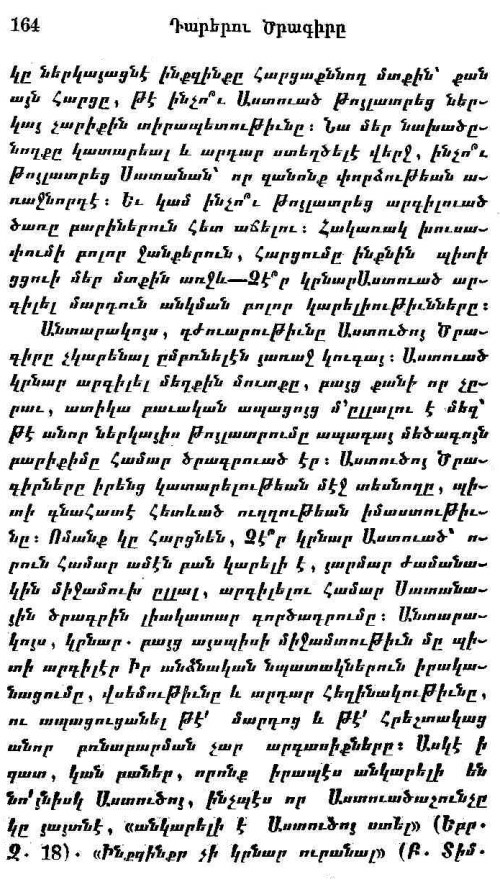 164 Դարերու Ծրագիրը
կը ներկայացնէ ինքզինքը հարցաքննող մտքին՝ քան
այն հարցը, թէ ինչո՞ւ Աստուած թոյլատրեց ներ-
կայ չարիքին տիրապետութիւնը։ Նա մեր նախածը-
նողքը կատարեալ և արդար ստեղծելէ վերջ, ինչո՞ւ
թոյլատրեց Սատանան՝ որ զանոնք փորձութեան ա-
ռաջնորդէ։ Եւ կամ ինչո՞ւ թոյլատրեց արգիլուած
ծառը բարիներուն հետ աճելու։ Հակառակ խուսա-
փումի բոլոր ջանքերուն, հարցումը ինքնին պիտի
ցցուի մեր մտքին առջև—Չէ՞ր կրնարԱստուած ար-
գիլել մարդուն անկման բոլոր կարելիութիւնները։
Անտարակոյս, դժուարութիւնը Աստուծոյ Ծրա-
գիրը չկարենալ ըմբռնելէն յառաջ կուգայ։ Աստուած
կրնար արգիլել մեղքին մուտքը, բայց քանի որ չը-
րաւ, ատիկա բաւական ապացոյց մ՚ըլլալու է մեզ՝
թէ անոր ներկայիս թոյլատրումը ապագայ մեծագոյն
բարիքիմը համար ծրագրուած էր։ Աստուծոյ Ծրա-
գիրները իրենց կատարելութեան մէջ տեսնողը, պի-
տի գնահատէ հետևած ուղղութեան իմաստութիւ-
նը։ Ոմանք կը հարցնեն, Չէ՞ր կրնար Աստուած՝ ո-
րուն համար ամէն բան կարելի է, յարմար ժամանա-
կին միջամուխ ըլլալ, արգիլելու համար Սատանա-
յին ծրագրին լիակատար գործադրումը։ Անտարա-
կոյս, կրնար. բայց այսպիսի միջամտութիւն մը պի-
տի արգիլէր Իր անձնական նպատակներուն իրակա-
նացումը, վսեմութիւնը և արդար հեղինակութիւնը,
ու ապացուցանել թէ՛ մարդոց և թէ՛ հրեշտակաց
անոր բռնաբարման չար արդասիքները։ Ասկէ ի
զատ, կան բաներ, որոնք իրապէս անկարելի են
նո՛յնիսկ Աստուծոյ, ինչպէս որ Աստուածաշունչը
կը յայտնէ, «անկարելի է Աստուծոյ ստել» (Եբր.
Զ. 18). «Ինքզինքր չի կրնար ուրանալ» (Բ. Տիմ.